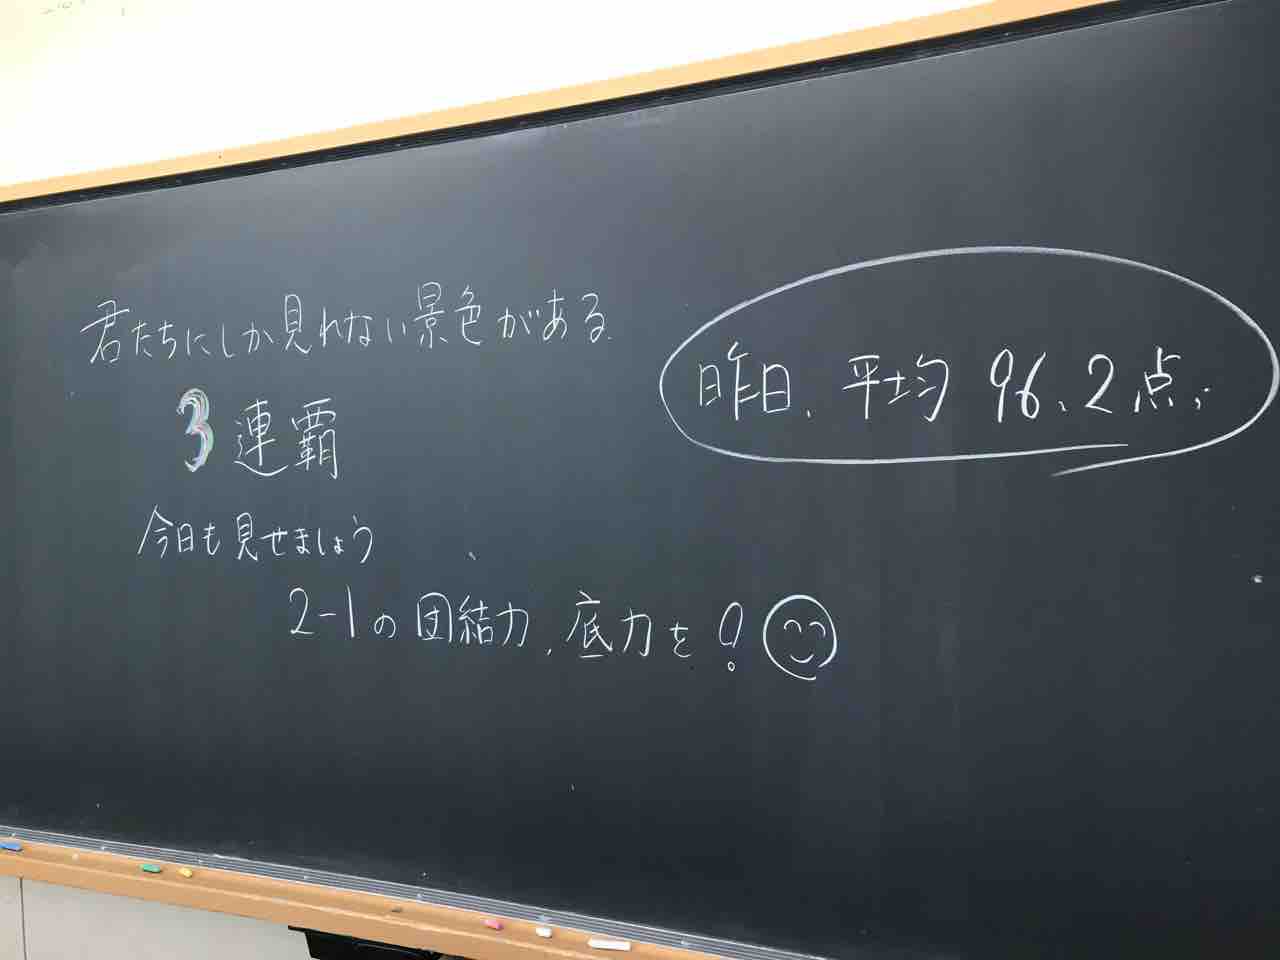 君たちにしか見れない景色がある.
3連覇
今日も見せましょう
2-1の団結力、底力を!
昨日、平均 96.2点、